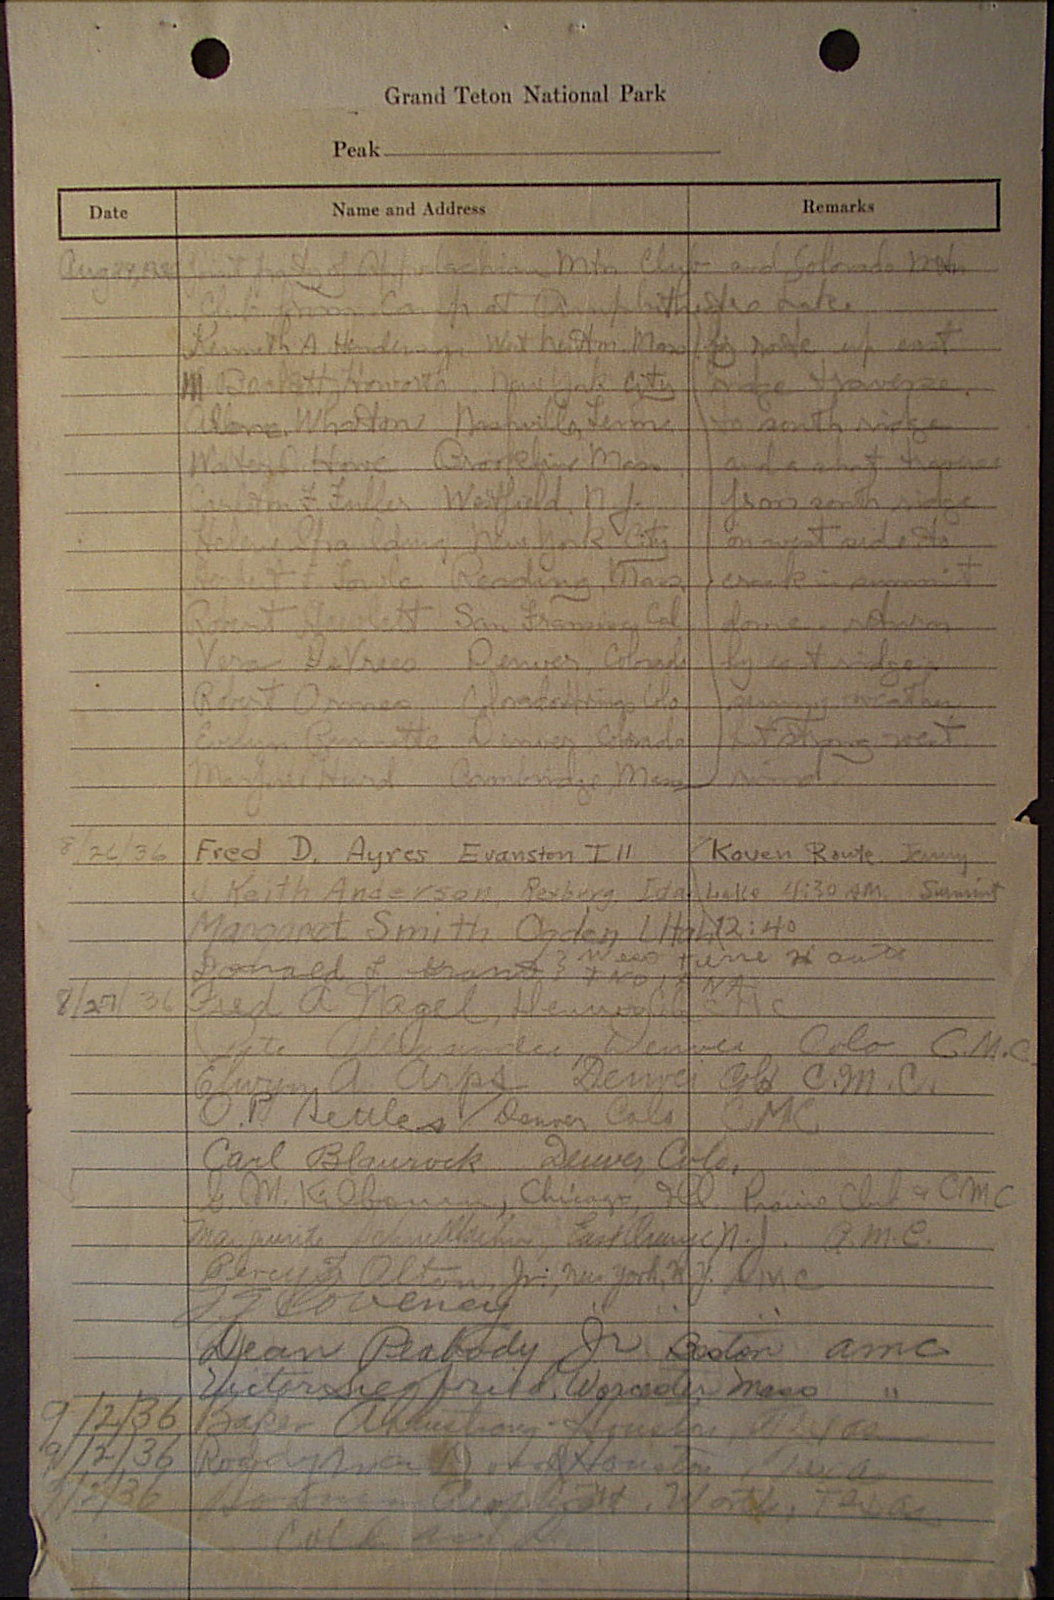 Grand Teton National Park
Peak
Date Name and Address Remarks
joint party of Appalachian Mtn Club and Colorado Mtn
Club from Camp at Amphitheatre Lake.
Kenneth A. Henderson West Newton Mass up east
M. Beckett Howorth New York City ridge traverse
Wharton Nashville, Tenn. to south ridge
Walter Howe Brookline Mass and a short traverse
Carleton F. Fuller Westfield, N.J. from south ridge
Helen Spaulding New York City on west side to
Reading, Mass. crack in summit
Robert San Francisco Cal dome. return
Vera DeVries Denver, Colorado by east ridge.
Robert Ormes Colorado Springs Colo sunny weather
Evelyn Runnette Denver, Colorado but strong west
Marjorie Hurd Cambridge Mass wind.
8/26/36 Fred D. Ayres Evanston Ill Koven Route. Jenny
J Keith Anderson Rexburg Ida Lake 4:30 AM. Summit
Margaret Smith Ogden Utah 12:40
Donald L Grant
8/27/36 Fred A Nagel, Denver Colo CMC
Denver Colo C.M.C.
Elwyn A. Arps Denver Colo C.M.C.
Denver Colo CMC
Carl Blaurock Denver Colo.
Chicago, Ill. Prairie Club & CMC
Marguerite East Orange N.J. A.M.C.
Percy Olton, Jr., New York, N.Y. AMC
" " "
Dean Peabody Jr Boston AMC
Victor Siegfried, Worcester Mass "
9/2/36 Baker Armstrong - Houston, Texas
9/2/36 Houston, Texas
9/2/36 Ft. Worth, Texas
Cold and